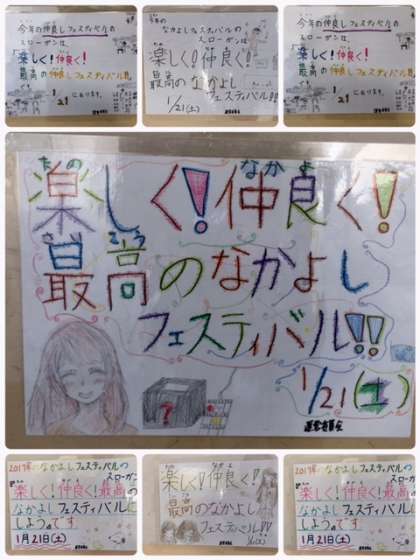 今年の仲良しフェスティバルの
スローガンは
「楽しく!仲良く!
最高の仲良しフェスティバル!!
1/21 になります。
なかよしフェスティバルの
スローガンは
楽しく!仲良く!
最高のなかよし
フェスティバル!!
1/21(土)
今年の仲良しフェスティバルの
スローガンは
「楽しく!仲良く!
最高の仲良しフェスティバル!!
1/21 になります。
たの なかよ
楽しく!仲良く!
さいこう
最高のなかよし
フェスティバル!!
?
1/21(土)
運営委員会
なかよしフェスティバルの
スローガン
楽しく!仲良く!最高の
なかよしフェスティバルに
しようです
1月21日(土)
楽しく!仲良く!
最高のなかよし
フェスティバル!!
なかよしフェスティバルの
スローガン
楽しく!仲良く!最高の
なかよしフェスティバルに
しようです
1月21日(土)